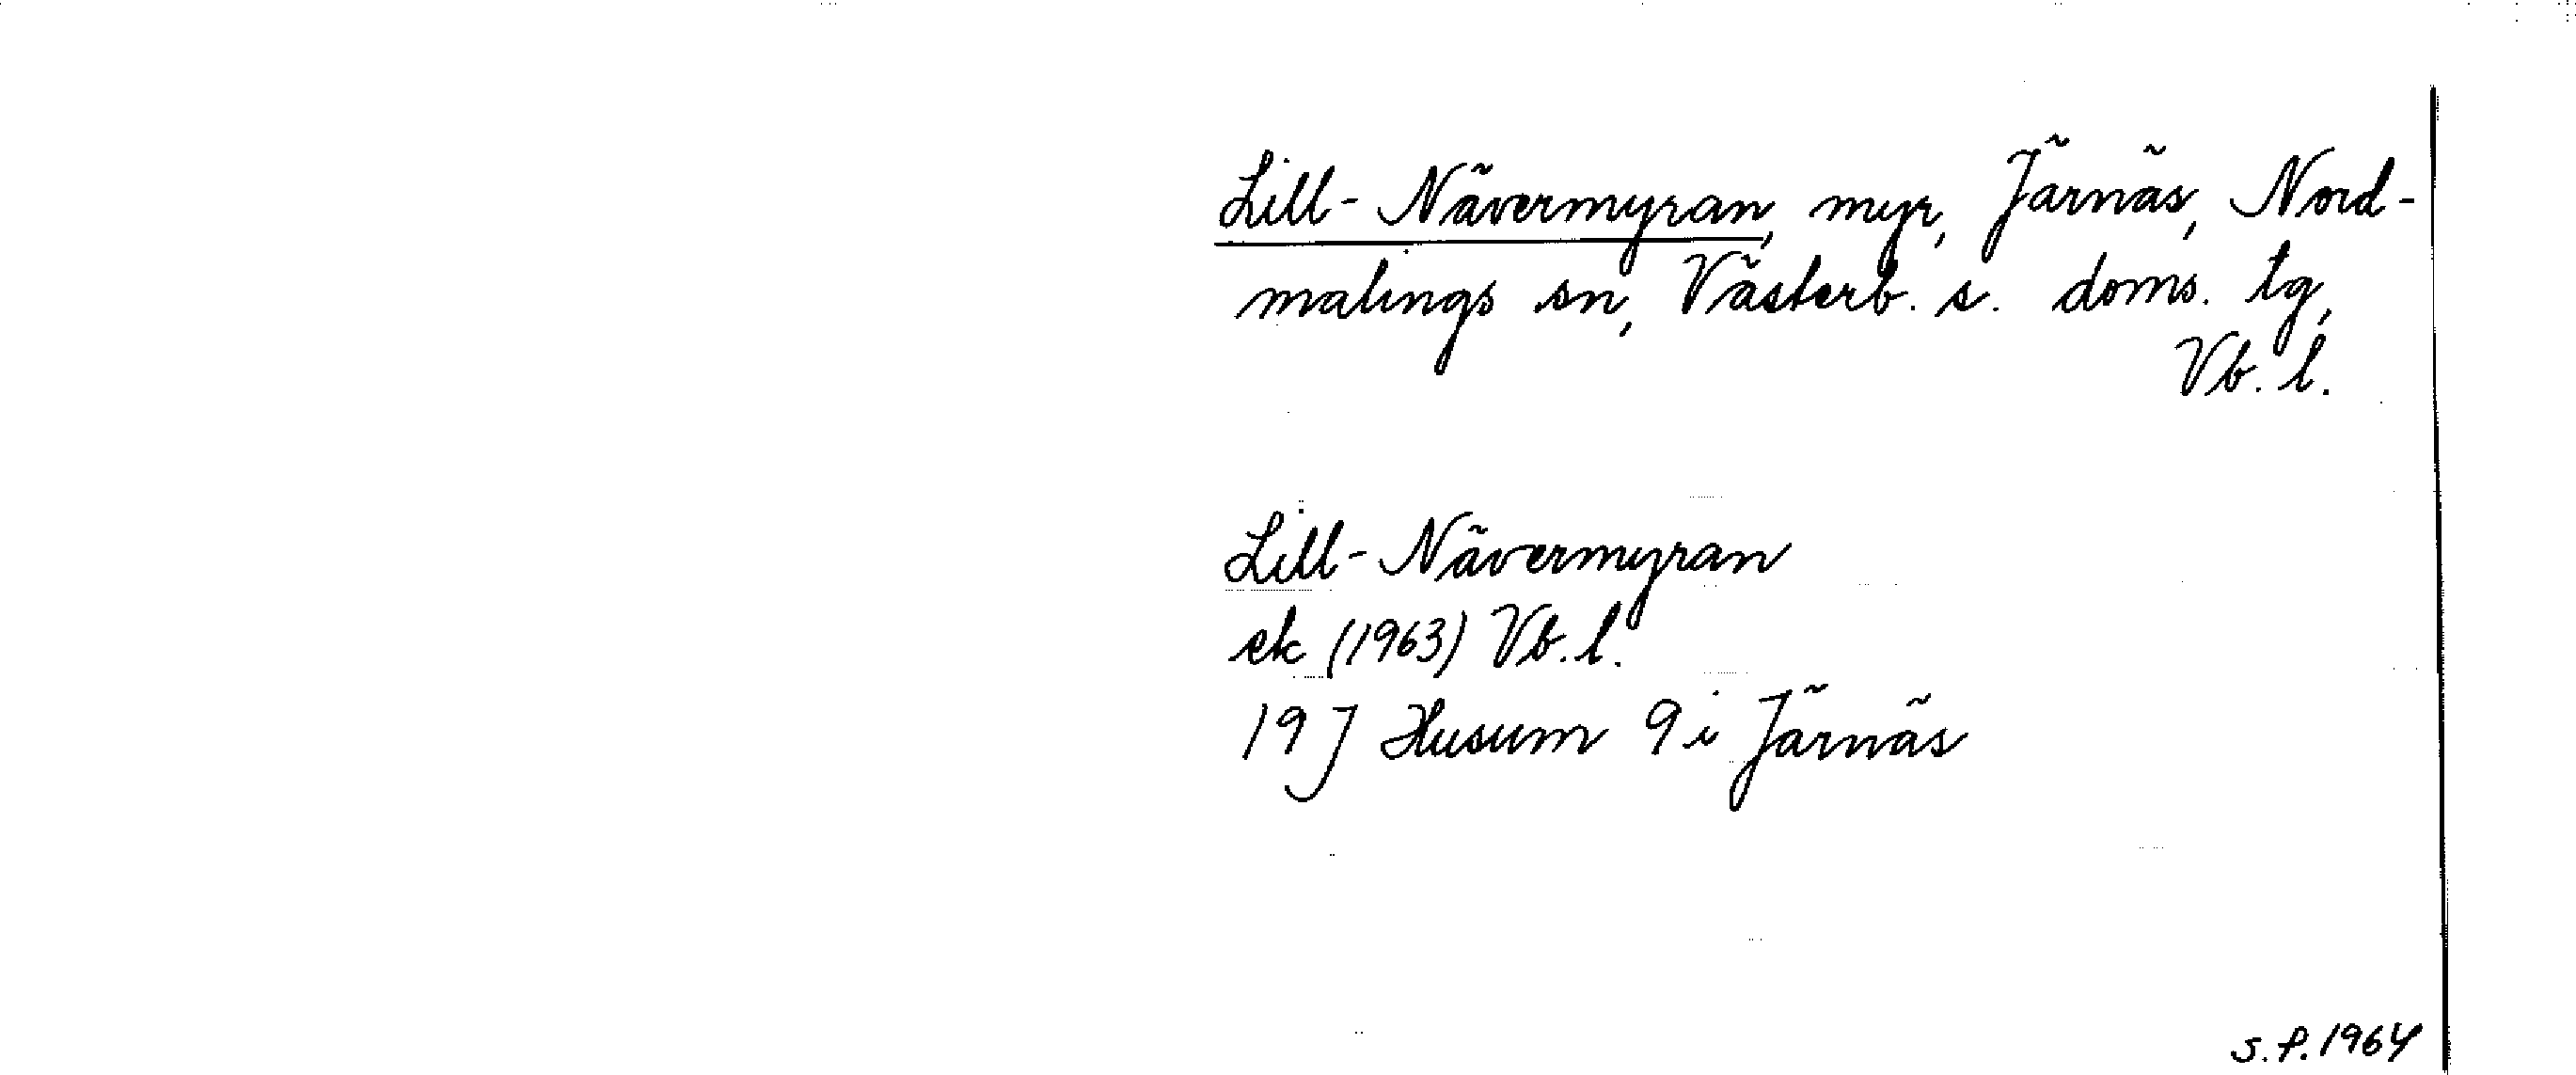 Lill-Nävermyran, myr, Järnäs, Nord-
malings sn, Västerb. s. doms. tg,
Vb. l.
Lill-Nävermyran
ek (1963) Vb. l.
19 J Husum 9 i Järnäs
S.P. 1964